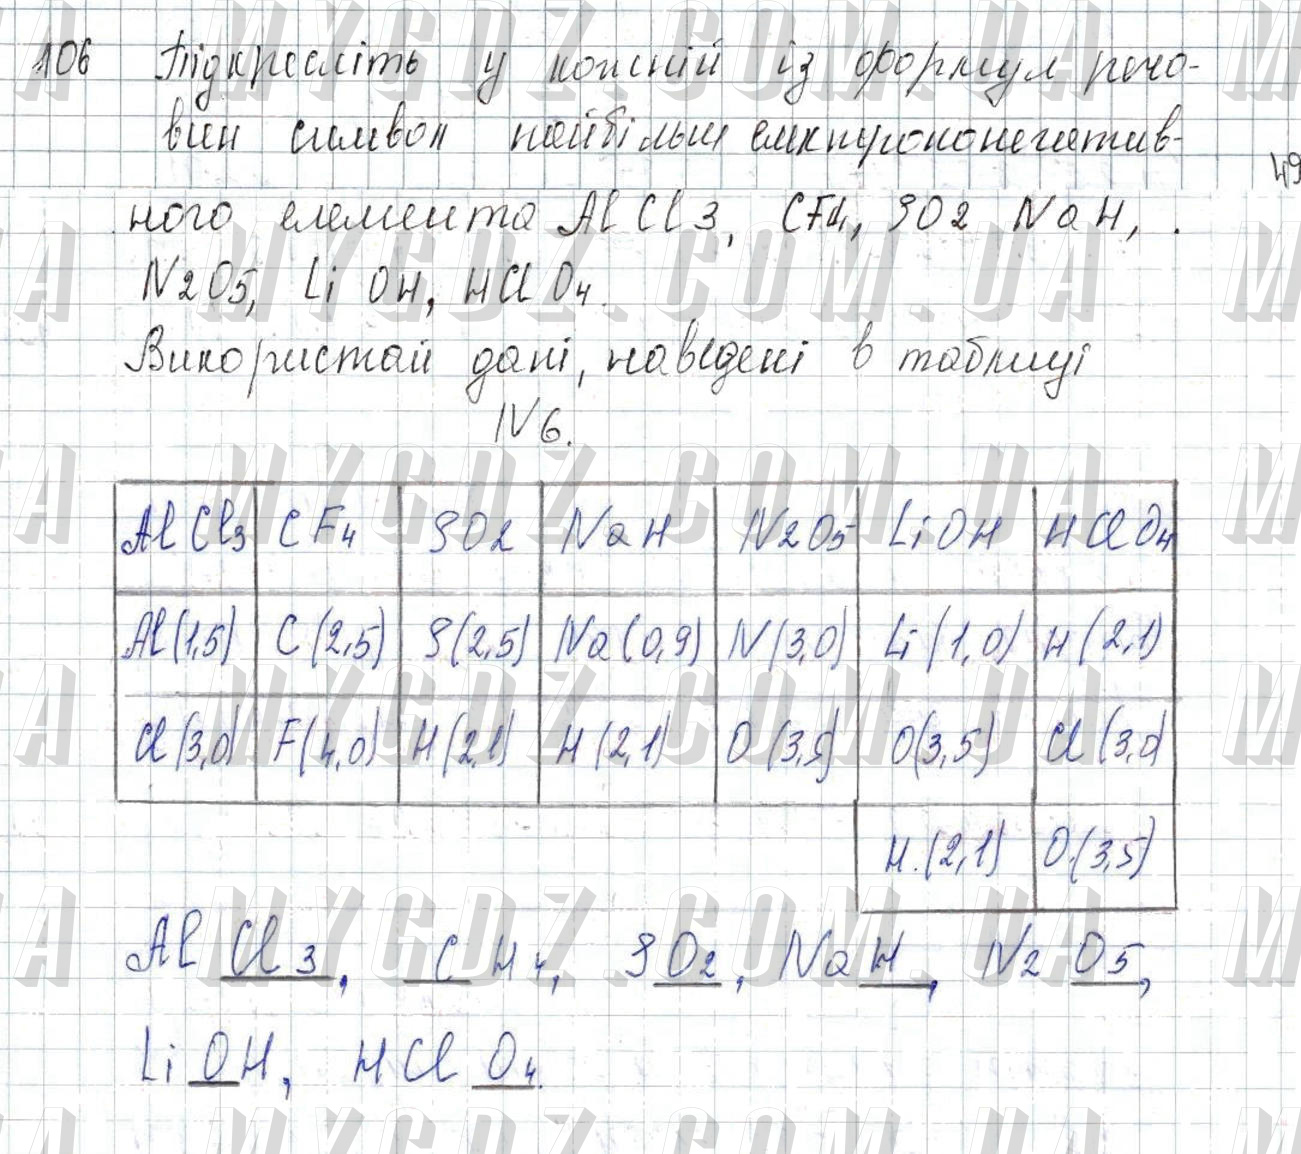 106 Підкресліть у кожній із формул речо-
вин символ найбільш електрононегатив-
49
ного елемента AlCl3, CF4, SO2 NaH, .
N2O5, LiOH, HClO4.
Використай дані, наведені в таблиці
N6.
AlCl3 CF4 SO2 NaH N2O5 LiOH HClO4
Al(1,5) C(2,5) S(2,5) Na(0,9) N(3,0) Li(1,0) H(2,1)
Cl(3,0) F(4,0) H(2,1) H(2,1) O(3,5) O(3,5) Cl(3,0)
H.(2,1) O.(3,5)
AlCl3, CH4, SO2, NaH, N2O5,
LiOH, HClO4.
MYGDZ.COM.UA